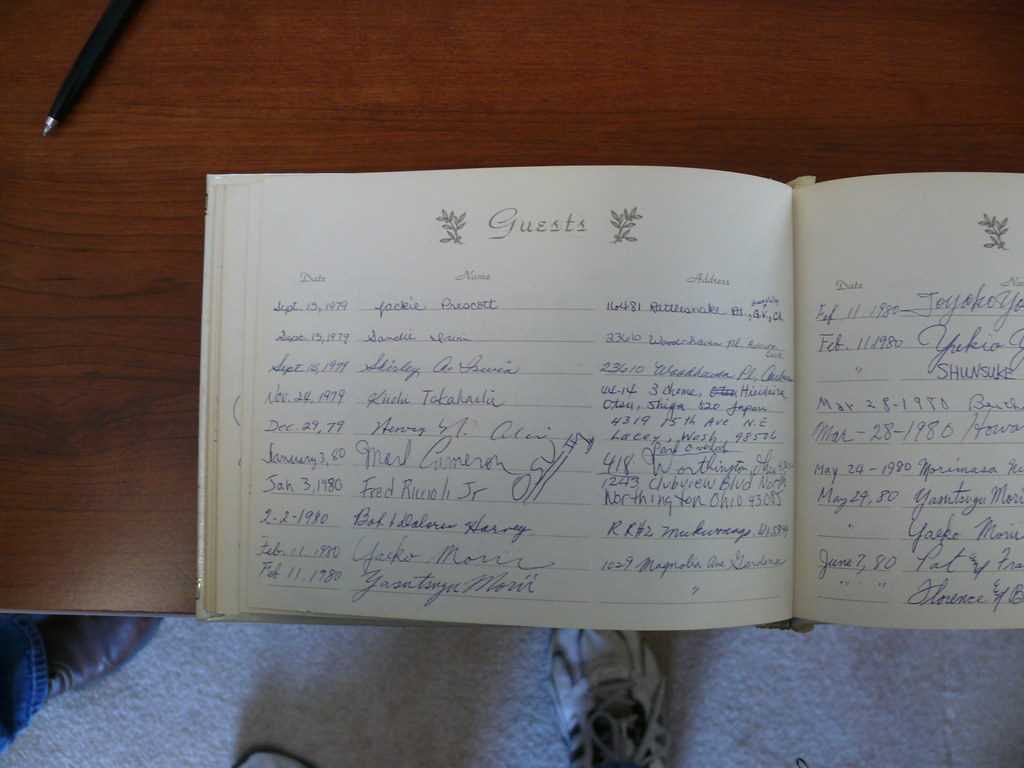 Guests
Date Name Address
Sept. 15, 1979 Jackie Prescott 16481 Rattlesnake Rd.,
Sept. 15, 1979 Sandie Irwin 23610 Woodhaven Pl.
Sept. 15, 1979 Shirley A. Irwin 23610 Woodhaven Pl,
Nov. 24, 1979 Takahashi 44-14 3 chome,
Otsu, Shiga 520 Japan
Dec. 29, 79 Henry 4319 15th Ave N.E.
Lacey, Wash, 98506
January 3, 80 Mark Cameron 418
Worthington, Ohio
Jan 3, 1980 Fred Riccioli Jr 1243 Clubview Blvd North
Worthington Ohio 43085
2-2-1980 Bob & Dolores Harvey RR#2 Mukwonago,
Feb. 11, 1980 Yaeko Morii 1029 Magnolia Ave Gardena
Feb 11, 1980 Yasutsugu Morii "
Date Na
Feb 11 1980 Toyoko Yo
Feb. 11 1980 Yukio Y
" SHUNSUKE
Mar 28-1980
Mar-28-1980 Howa
May 24-1980 Morimasa
May 24, 80 Yasutsugu Mori
" Yaeko Morii
June 7, 80 Pat & Fra
" " " Florence & B